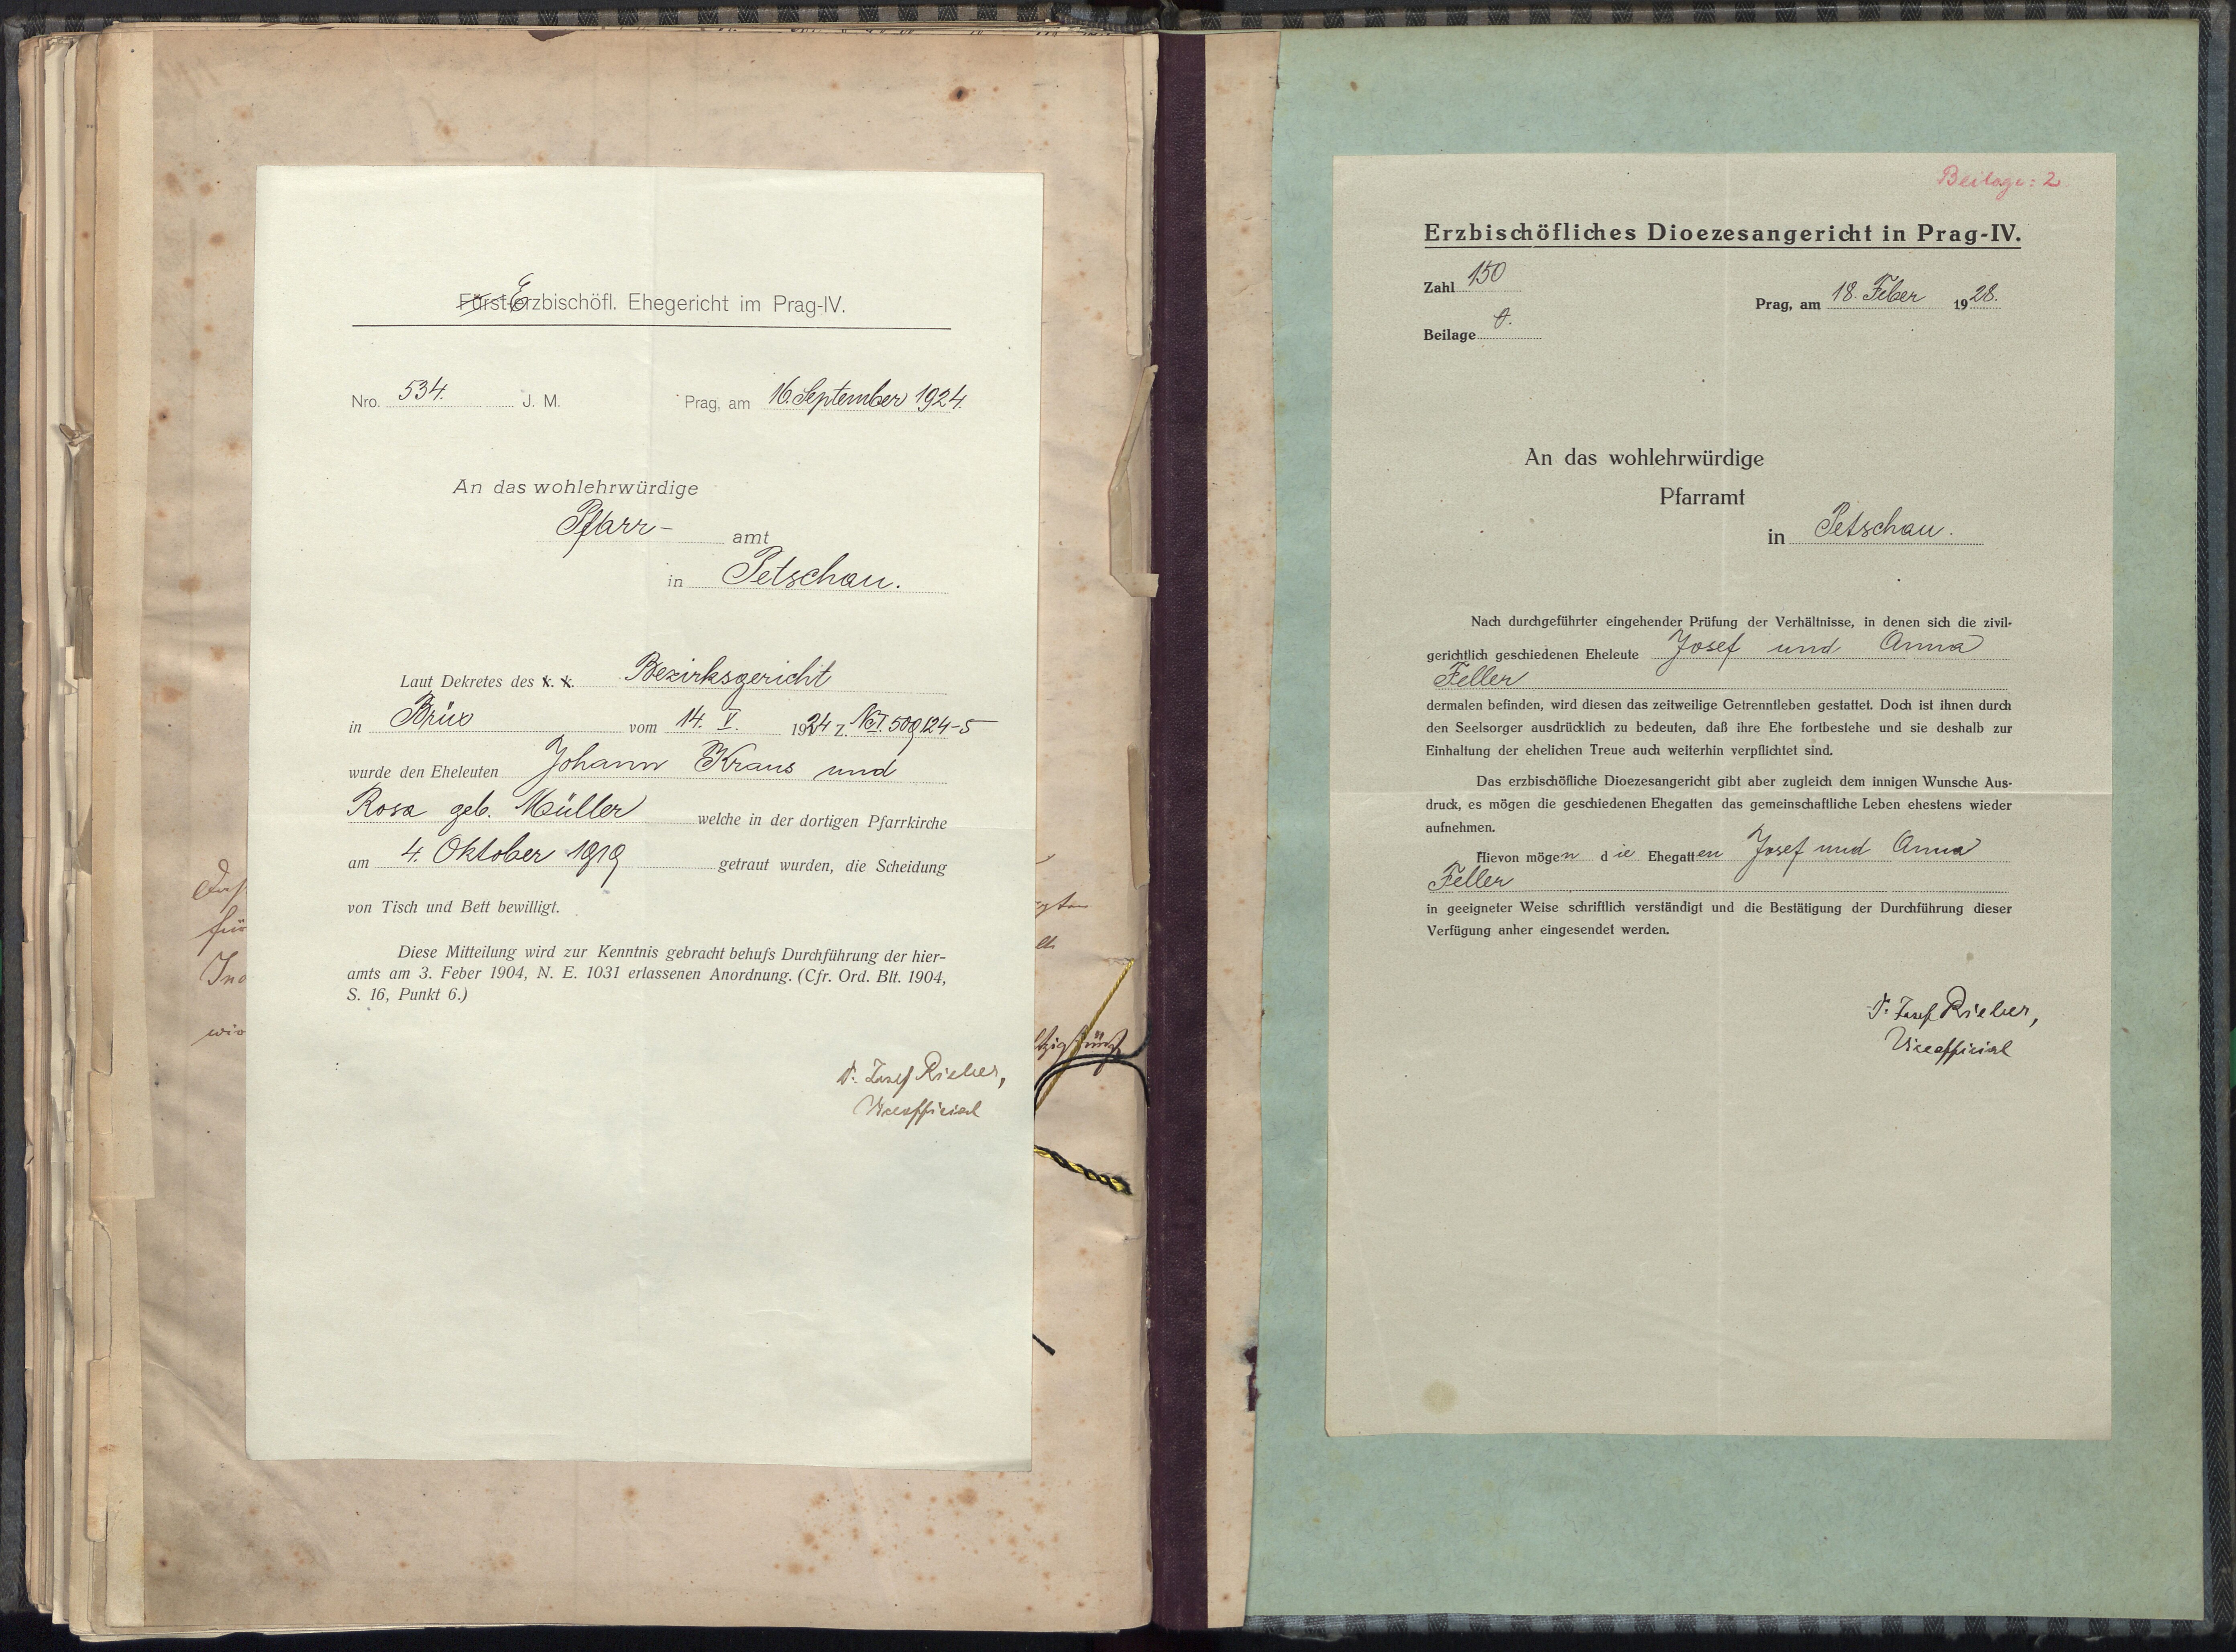 Fürst-Erzbischöfl. Ehegericht im Prag-IV.
Nro. 534. J. M.
Prag, am 16. September 1924.
An das wohlehrwürdige
Pfarr- amt
in Petschau.
Laut Dekretes des k. k. Bezirksgericht
in Brüx vom 14. V. 1924 Z. Nc I. 509/24-5
wurde den Eheleuten Johann Kraus und
Rosa geb. Müller welche in der dortigen Pfarrkirche
am 4. Oktober 1919 getraut wurden, die Scheidung
von Tisch und Bett bewilligt.
Diese Mitteilung wird zur Kenntnis gebracht behufs Durchführung der hier-
amts am 3. Feber 1904, N. E. 1031 erlassenen Anordnung. (Cfr. Ord. Blt. 1904,
S. 16, Punkt 6.)
Dr. Josef Rieber,
Viceofficial
Beilage: 2
Erzbischöfliches Dioezesangericht in Prag-IV.
Zahl 150
Prag, am 18. Feber 1928.
Beilage
An das wohlehrwürdige
Pfarramt
in Petschau.
Nach durchgeführter eingehender Prüfung der Verhältnisse, in denen sich die zivil-
gerichtlich geschiedenen Eheleute Josef und Anna
Feller
dermalen befinden, wird diesen das zeitweilige Getrenntleben gestattet. Doch ist ihnen durch
den Seelsorger ausdrücklich zu bedeuten, daß ihre Ehe fortbestehe und sie deshalb zur
Einhaltung der ehelichen Treue auch weiterhin verpflichtet sind.
Das erzbischöfliche Dioezesangericht gibt aber zugleich dem innigen Wunsche Aus-
druck, es mögen die geschiedenen Ehegatten das gemeinschaftliche Leben ehestens wieder
aufnehmen.
Hievon mögen die Ehegatten Josef und Anna
Feller
in geeigneter Weise schriftlich verständigt und die Bestätigung der Durchführung dieser
Verfügung anher eingesendet werden.
Dr. Josef Rieber,
Viceofficial